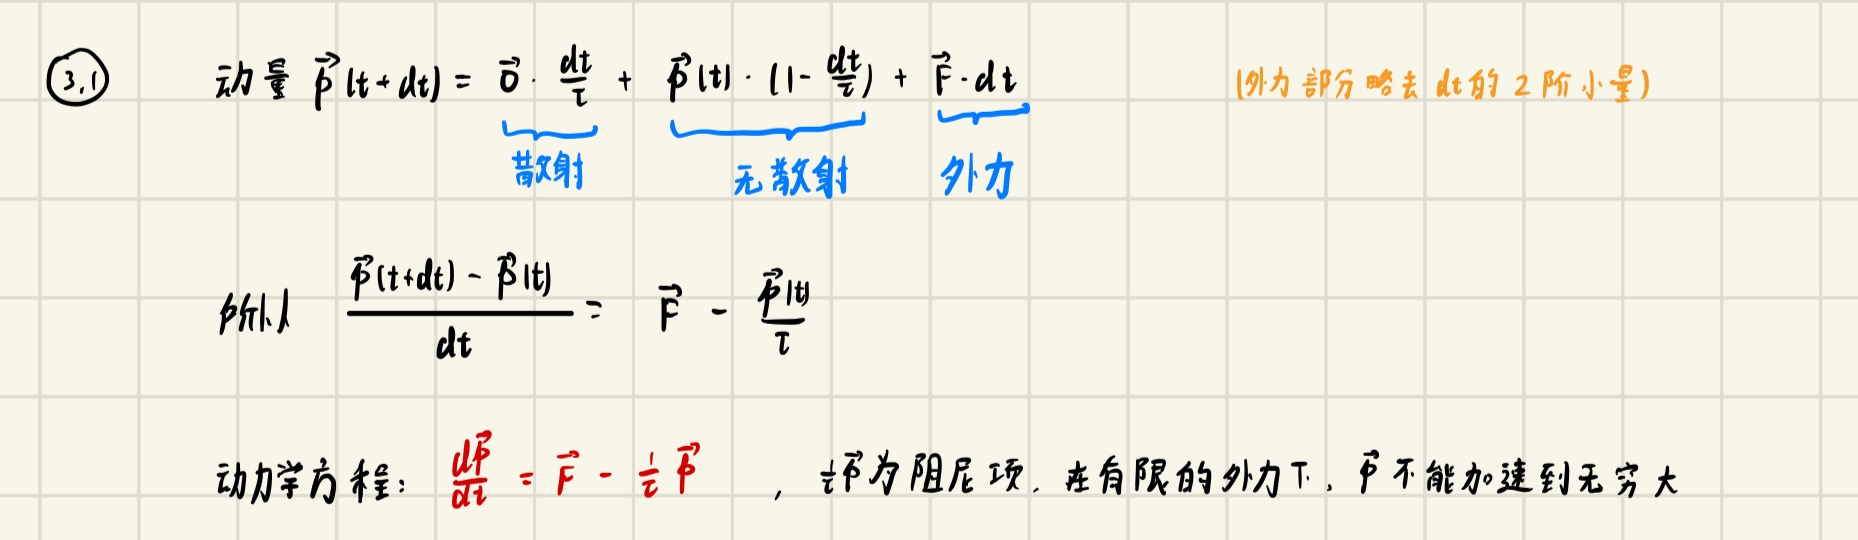 3.1 动量 p⃗(t+dt) = 0⃗ · dt/τ + p⃗(t) · (1 - dt/τ) + F⃗ · dt (外力部分略去 dt 的 2 阶小量)
散射 无散射 外力
所以 (p⃗(t+dt) - p⃗(t))/dt = F⃗ - p⃗(t)/τ
动力学方程: dp⃗/dt = F⃗ - 1/τ p⃗ , 1/τ p⃗ 为阻尼项. 在有限的外力下, p⃗ 不能加速到无穷大